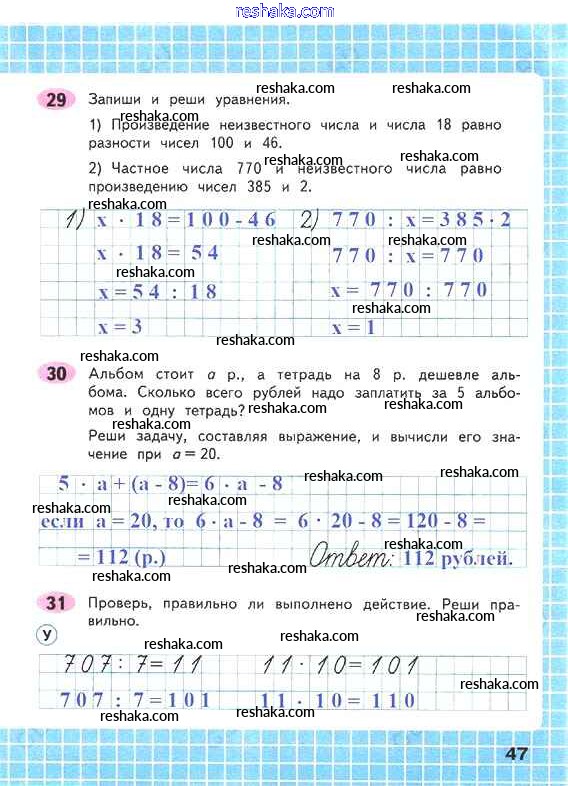 reshaka.com
reshaka.com
reshaka.com
29 Запиши и реши уравнения.
reshaka.com
1) Произведение неизвестного числа и числа 18 равно
разности чисел 100 и 46.
reshaka.com
reshaka.com
2) Частное числа 770 и неизвестного числа равно
произведению чисел 385 и 2.
reshaka.com
1) х · 18=100-46 2) 770 : х=385·2
reshaka.com
х · 18=54 770 : х=770
reshaka.com
reshaka.com
х=54 : 18 х= 770 : 770
reshaka.com
х=3 х=1
reshaka.com
reshaka.com
30 Альбом стоит а р., а тетрадь на 8 р. дешевле аль-
бома. Сколько всего рублей надо заплатить за 5 альбо-
мов и одну тетрадь?
reshaka.com
reshaka.com
Реши задачу, составляя выражение, и вычисли его зна-
чение при а=20.
reshaka.com
reshaka.com
5 · а+(а-8)=6·а -8
reshaka.com
если а=20, то 6·а-8 = 6·20-8=120-8=
reshaka.com
=112 (р.) Ответ: 112 рублей.
reshaka.com
reshaka.com
31 Проверь, правильно ли выполнено действие. Реши пра-
вильно.
У
reshaka.com
reshaka.com
707:7=11 11·10=101
reshaka.com
707 : 7=101 11 · 10=110
reshaka.com
reshaka.com
47